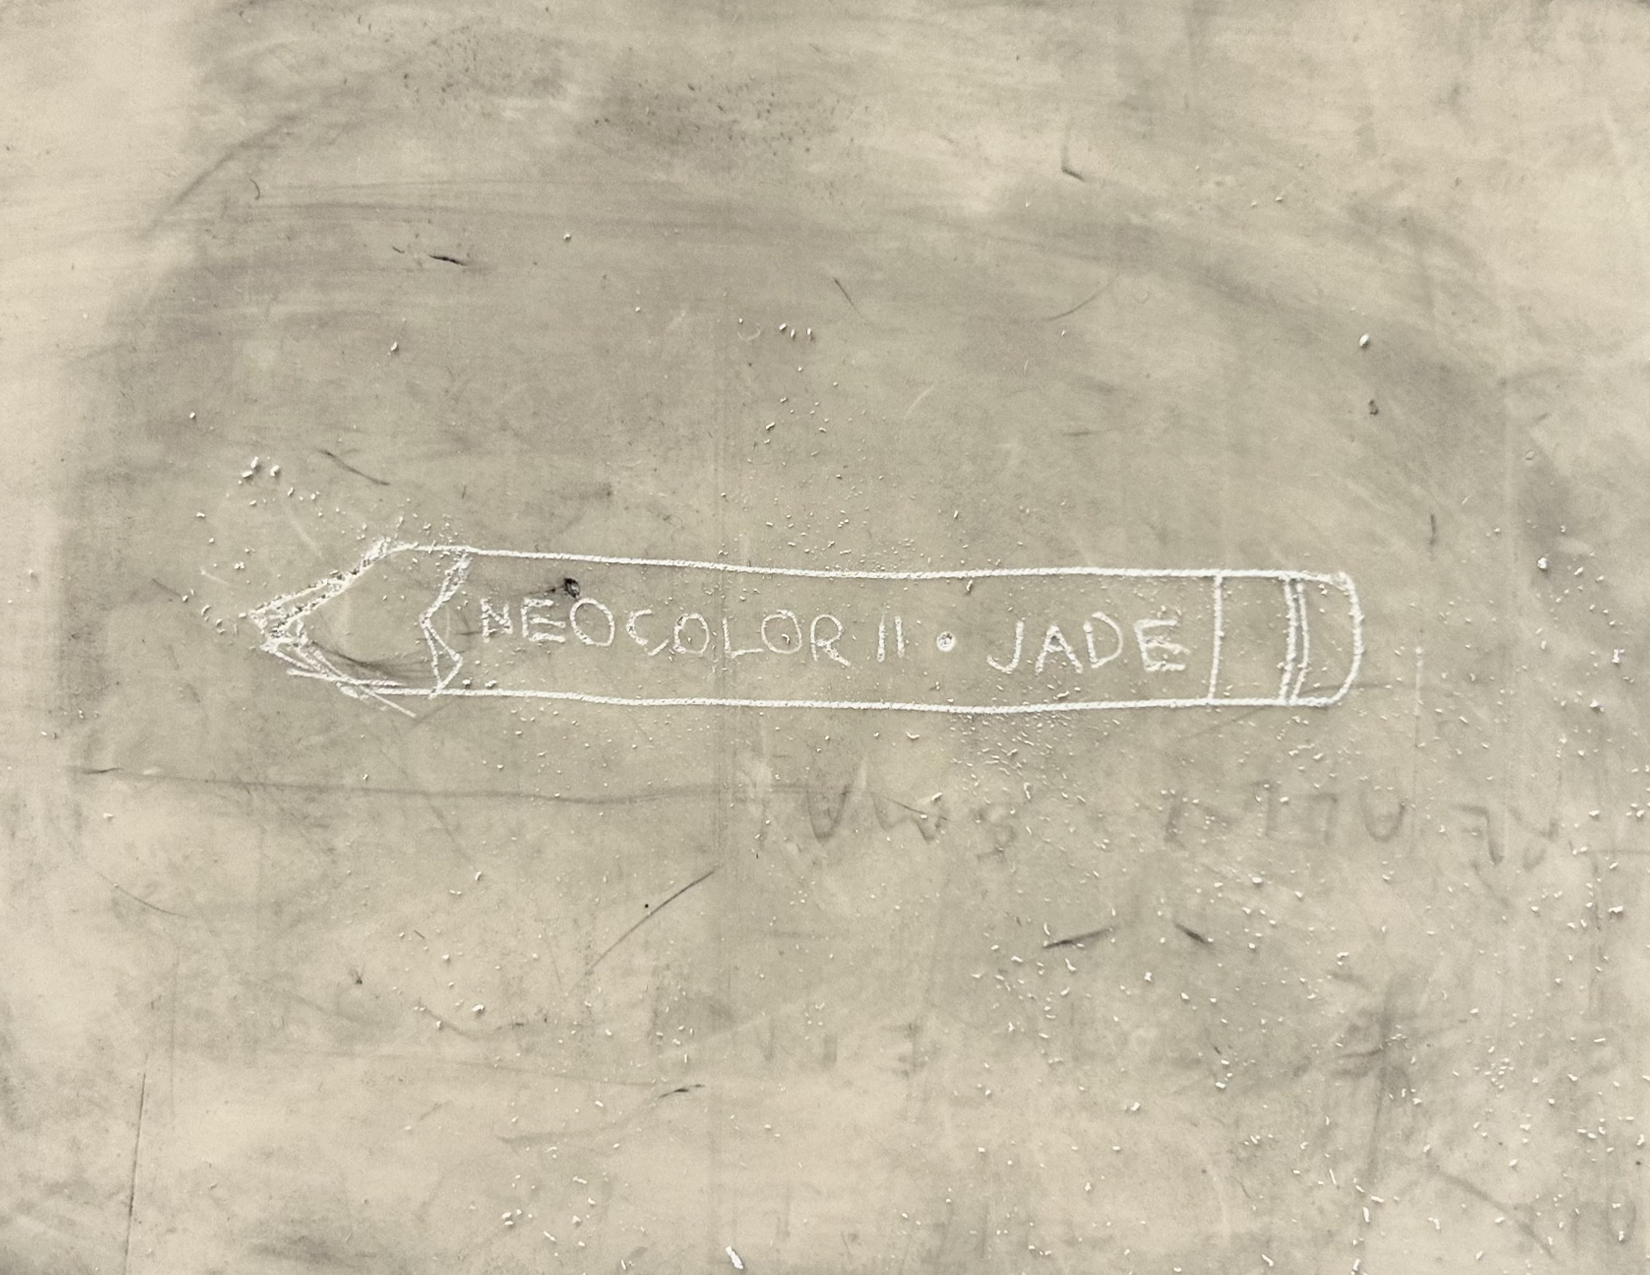 NEOCOLOR II • JADE